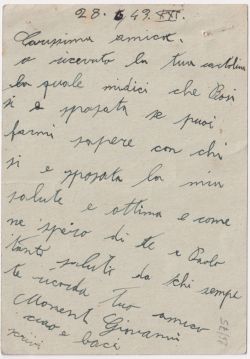 28. 6. 43. XXI.
Carissima amica.
o ricevuto la tua cartolina
la quale midici che Rosi
si e sposata se puoi
farmi sapere con chi
si e sposata la mia
salute e ottima e come
ne spero di te e Paolo
tanto saluti da chi sempre
te ricorda tuo amico
Giovanni
ciao e baci
scrivi